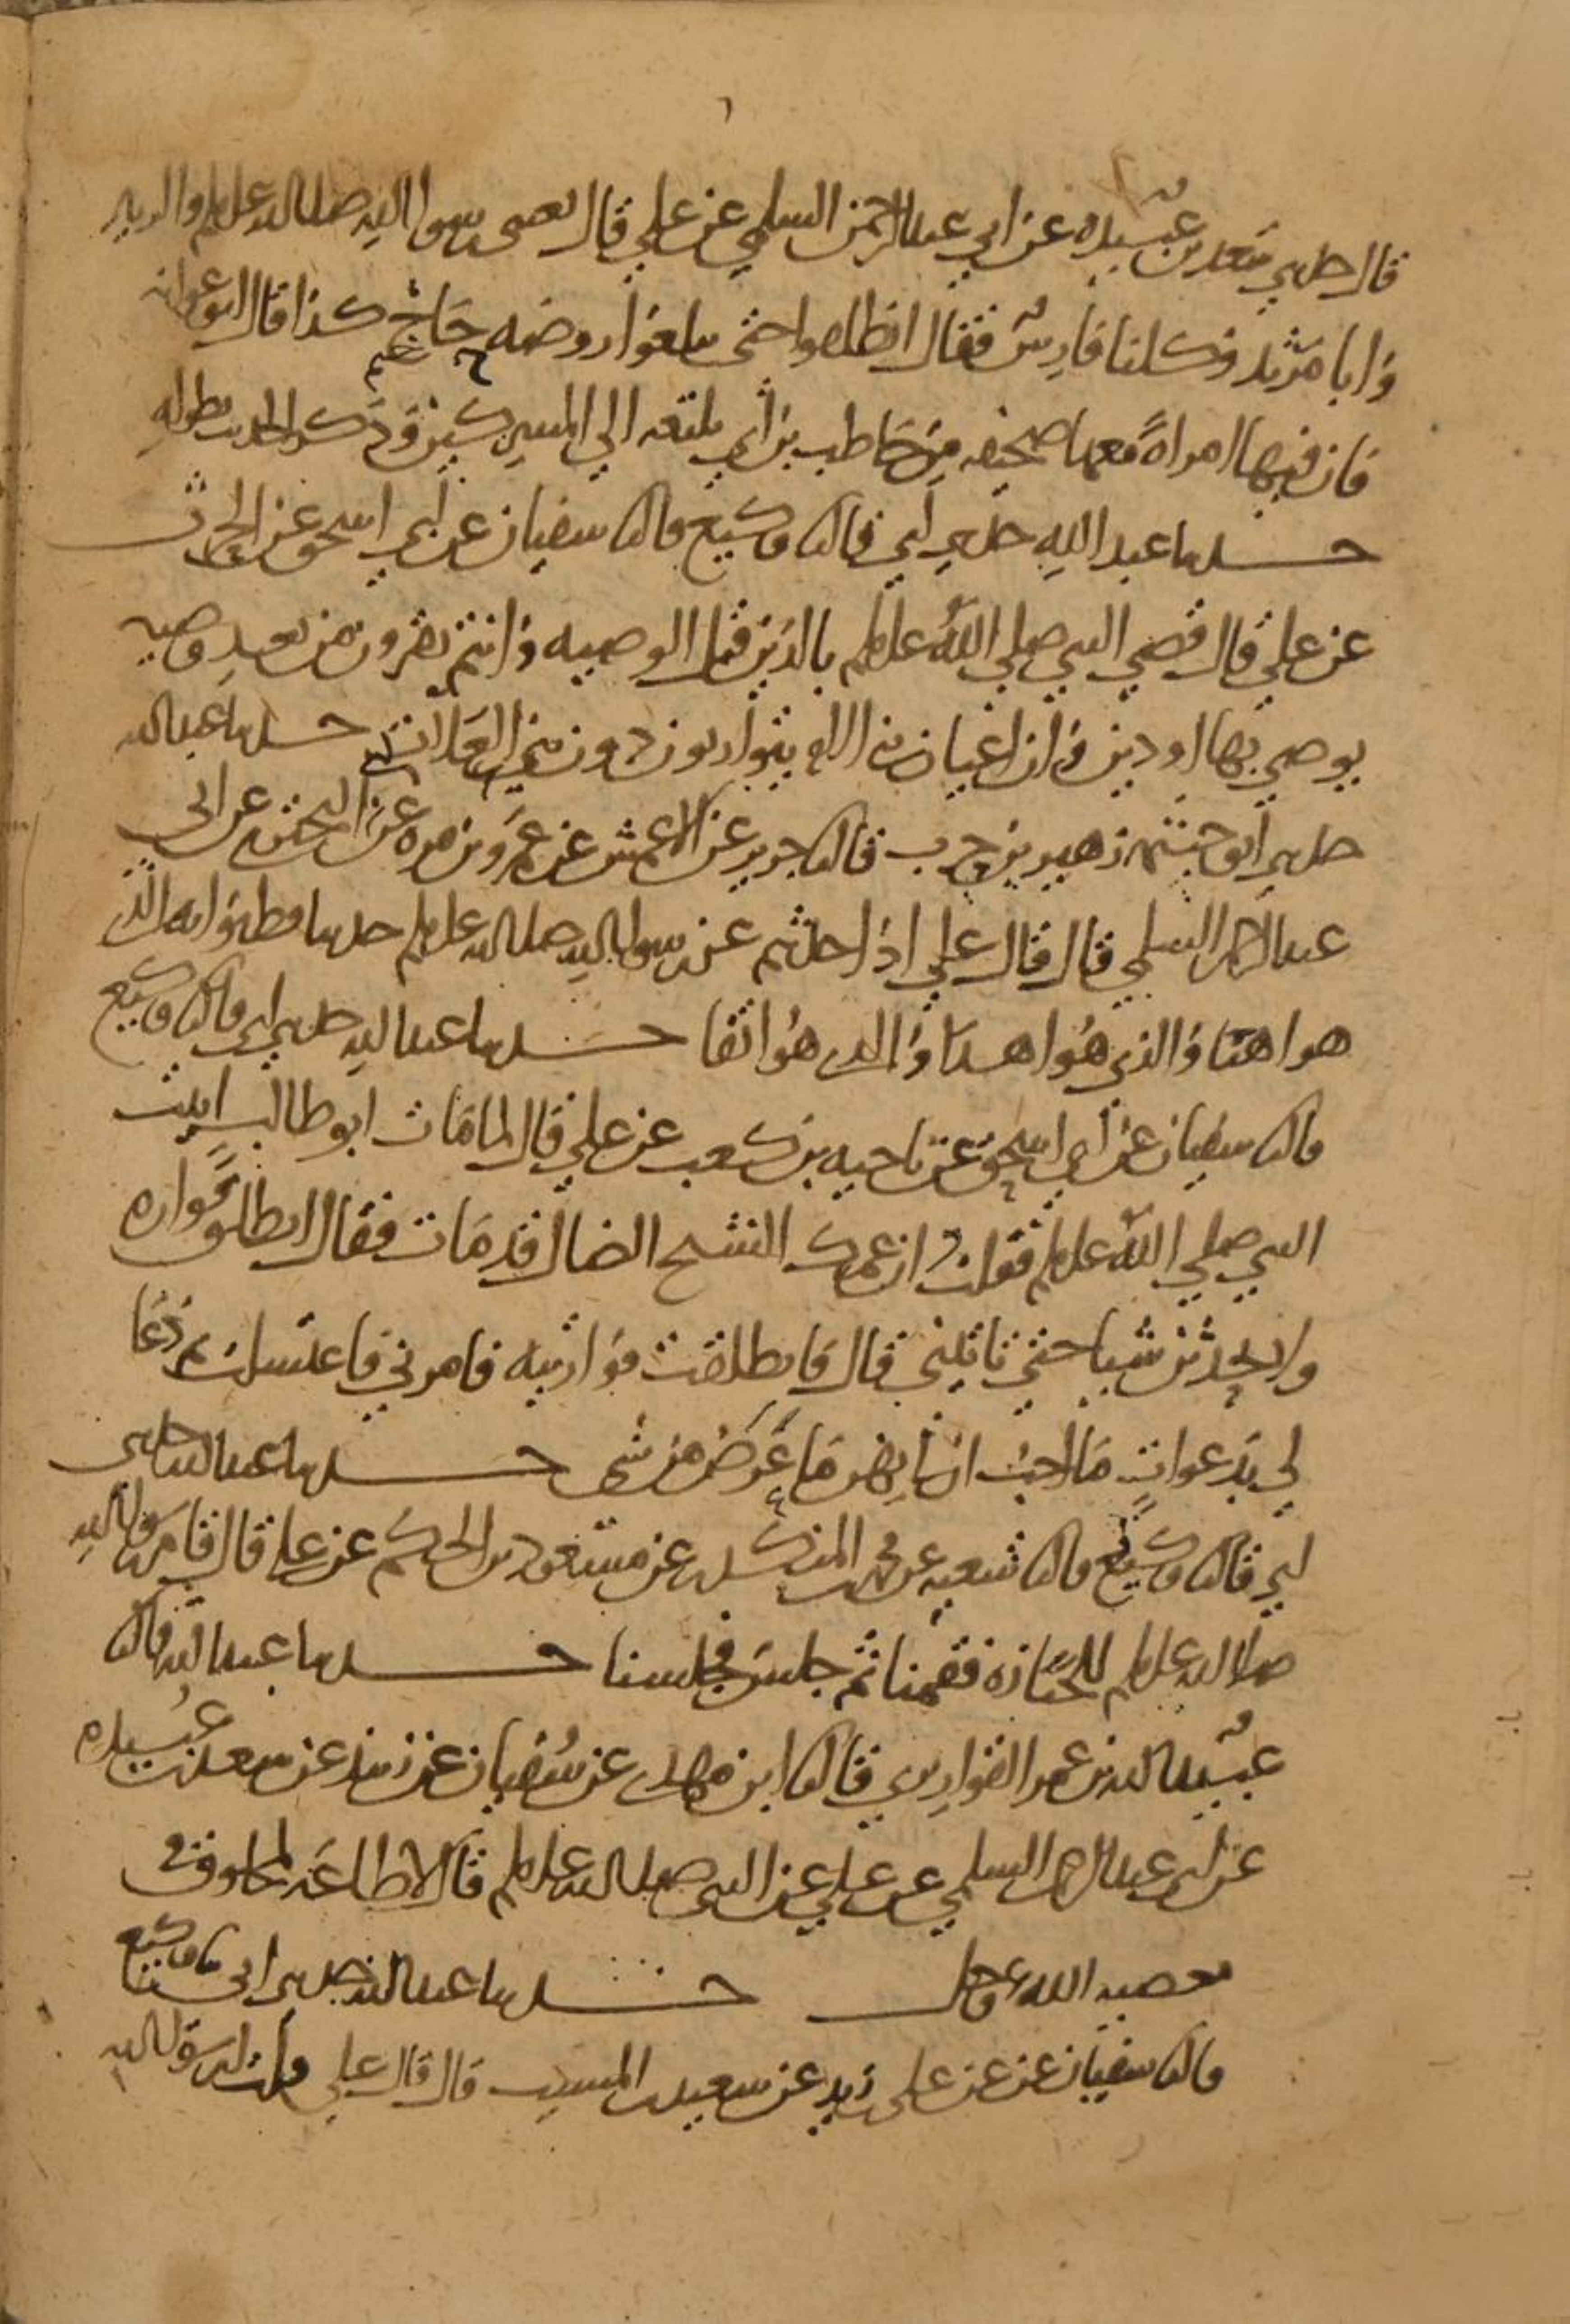 قال حدثني سعد بن عبيده عن ابي عبد الرحمن السلمي عن علي قال بعثني رسول الله صلى الله عليه وسلم والزبير
وابا مرثد وكلنا فارس فقال انطلقوا حتى تبلغوا روضه حاج كذا قال ابو عوانه
فان فيها امراة معها صحيفه من حاطب بن ابي بلتعه الي المشركين وذكر الحديث بطوله
حدثنا عبد الله حدثني ابي قال ثنا وكيع قال ثنا سفيان عن ابي اسحق عن الحارث
عن علي قال قضي النبي صلي الله عليه وسلم بالدين قبل الوصيه وانتم تقرون من بعد وصيه
يوصي بها او دين وان اعيان بني الام يتوارثون دون بني العلات حدثنا عبد الله
حدثني ابو خيثمه زهير بن حرب قال ثنا جرير عن الاعمش عن عمرو بن مره عن ابي البختري عن ابي
عبد الرحمن السلمي قال قال علي اذا حدثتم عن رسول الله صلى الله عليه وسلم حديثا فظنوا به الذي
هو اهنا والذي هو اهدى والذي هو اتقا حدثنا عبد الله حدثني ابي قال ثنا وكيع
قال ثنا سفيان عن ابي اسحق عن ناجيه بن كعب عن علي قال لما مات ابو طالب اتيت
النبي صلي الله عليه وسلم فقلت ان عمك الشيخ الضال قد مات فقال انطلق فواره
ولا تحدثن شيا حتي تاتيني قال فانطلقت فواريته فامرني فاغتسلت ثم دعا
لي بدعوات ما احب ان لي بهن ما عرض من شي حدثنا عبد الله حدثني
ابي قال ثنا وكيع قال ثنا شعبه عن محمد بن المنكدر عن مسعود بن الحكم عن علي قال قام رسول الله
صلى الله عليه وسلم للجنازه فقمنا ثم جلس فجلسنا حدثنا عبد الله قال ثنا
عبيد الله بن عمر القواريري قال ثنا ابن مهدي عن سفيان عن زبيد عن سعد بن عبيده
عن ابي عبد الرحمن السلمي عن علي عن النبي صلى الله عليه وسلم قال لا طاعه لمخلوق في
معصيه الله عز وجل حدثنا عبد الله حدثني ابي ثنا وكيع
قال ثنا سفيان عن عن علي بن زيد عن سعيد بن المسيب قال قال علي قلت لرسول الله